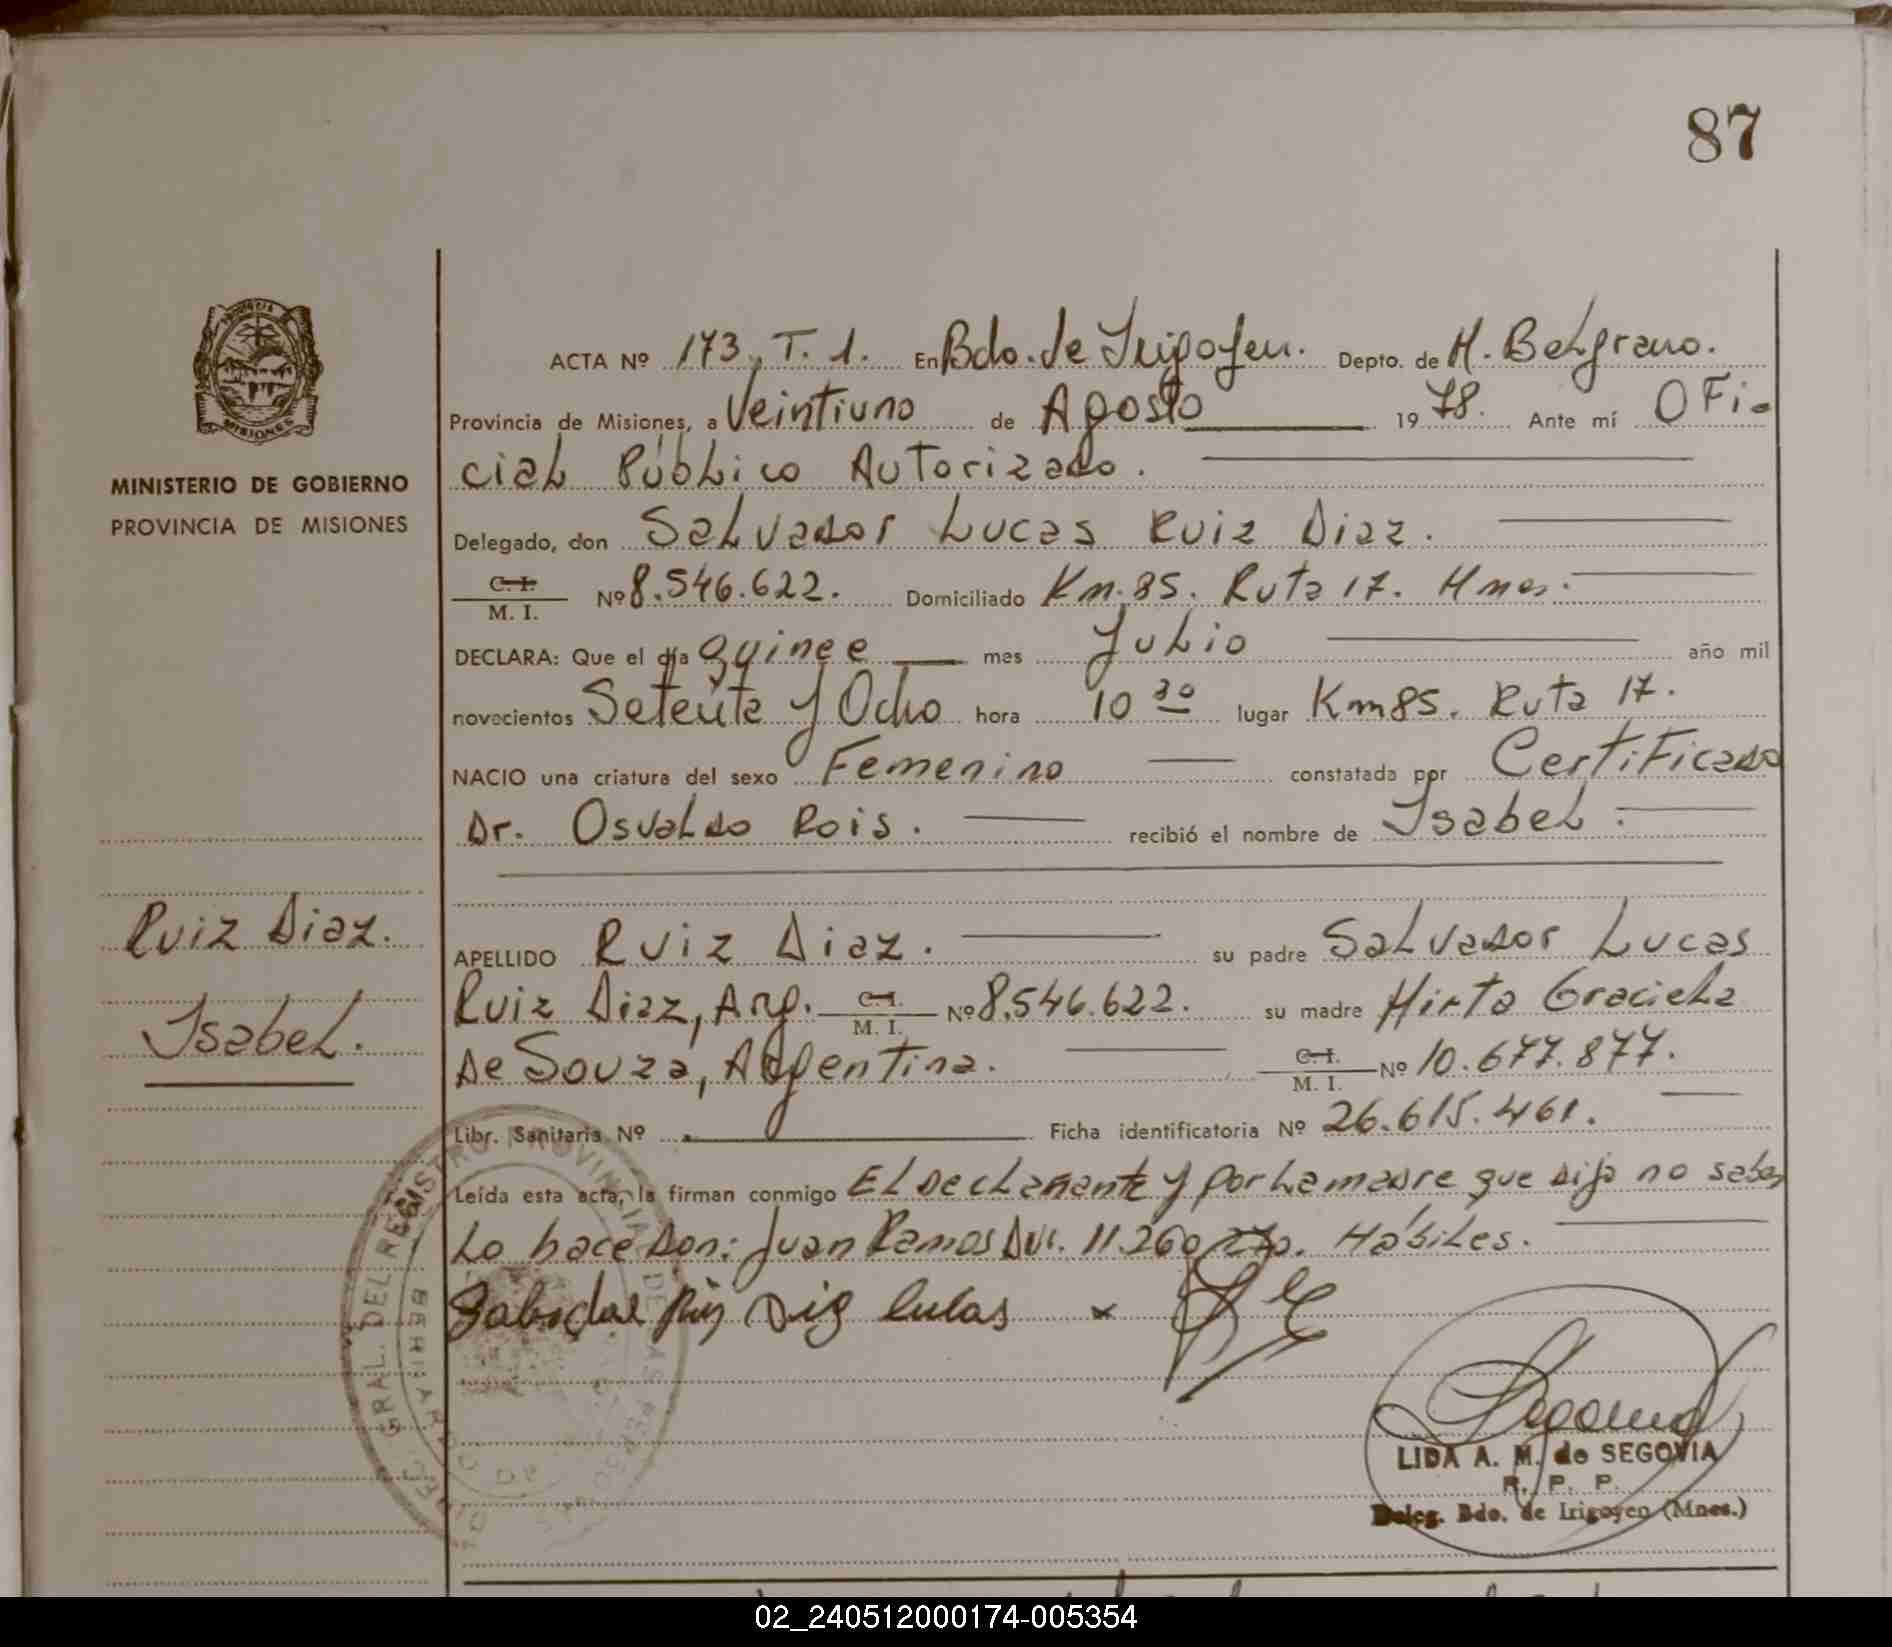 87
PROVINCIA
MISIONES
MINISTERIO DE GOBIERNO
PROVINCIA DE MISIONES
Ruiz Diaz.
Isabel.
ACTA Nº 173, T. 1. En Bdo. de Irigoyen. Depto. de M. Belgrano.
Provincia de Misiones, a Veintiuno de Agosto 1978. Ante mí OFi-
cial Público Autorizado.
Delegado, don Salvador Lucas Ruiz Diaz.
C. I. / M. I. Nº 8.546.622. Domiciliado Km. 85. Ruta 17. Mnes.
DECLARA: Que el día quince mes Julio año mil
novecientos Setenta y Ocho hora 10 30 lugar Km 85. Ruta 17.
NACIO una criatura del sexo Femenino constatada por Certificado
Dr. Osvaldo Rois. recibió el nombre de Isabel.
APELLIDO Ruiz Diaz. su padre Salvador Lucas
Ruiz Diaz, Arg. C. I. / M. I. Nº 8.546.622. su madre Mirta Graciela
De Souza, Argentina. C. I. / M. I. Nº 10.677.877.
Libr. Sanitaria Nº Ficha identificatoria Nº 26.615.461.
Leída esta acta, la firman conmigo El declarante y por la madre que dijo no saber
Lo hace Don: Juan Ramos 11.260 Hábiles.
Salvador Ruiz Diaz Lucas x
Segovia
LIDA A. M. de SEGOVIA
R. P. P.
Deleg. Bdo. de Irigoyen (Mnes.)
GRAL. DEL REGISTRO PROVINCIAL DE LAS PERSONAS
BERNARDO DE
02_240512000174-005354